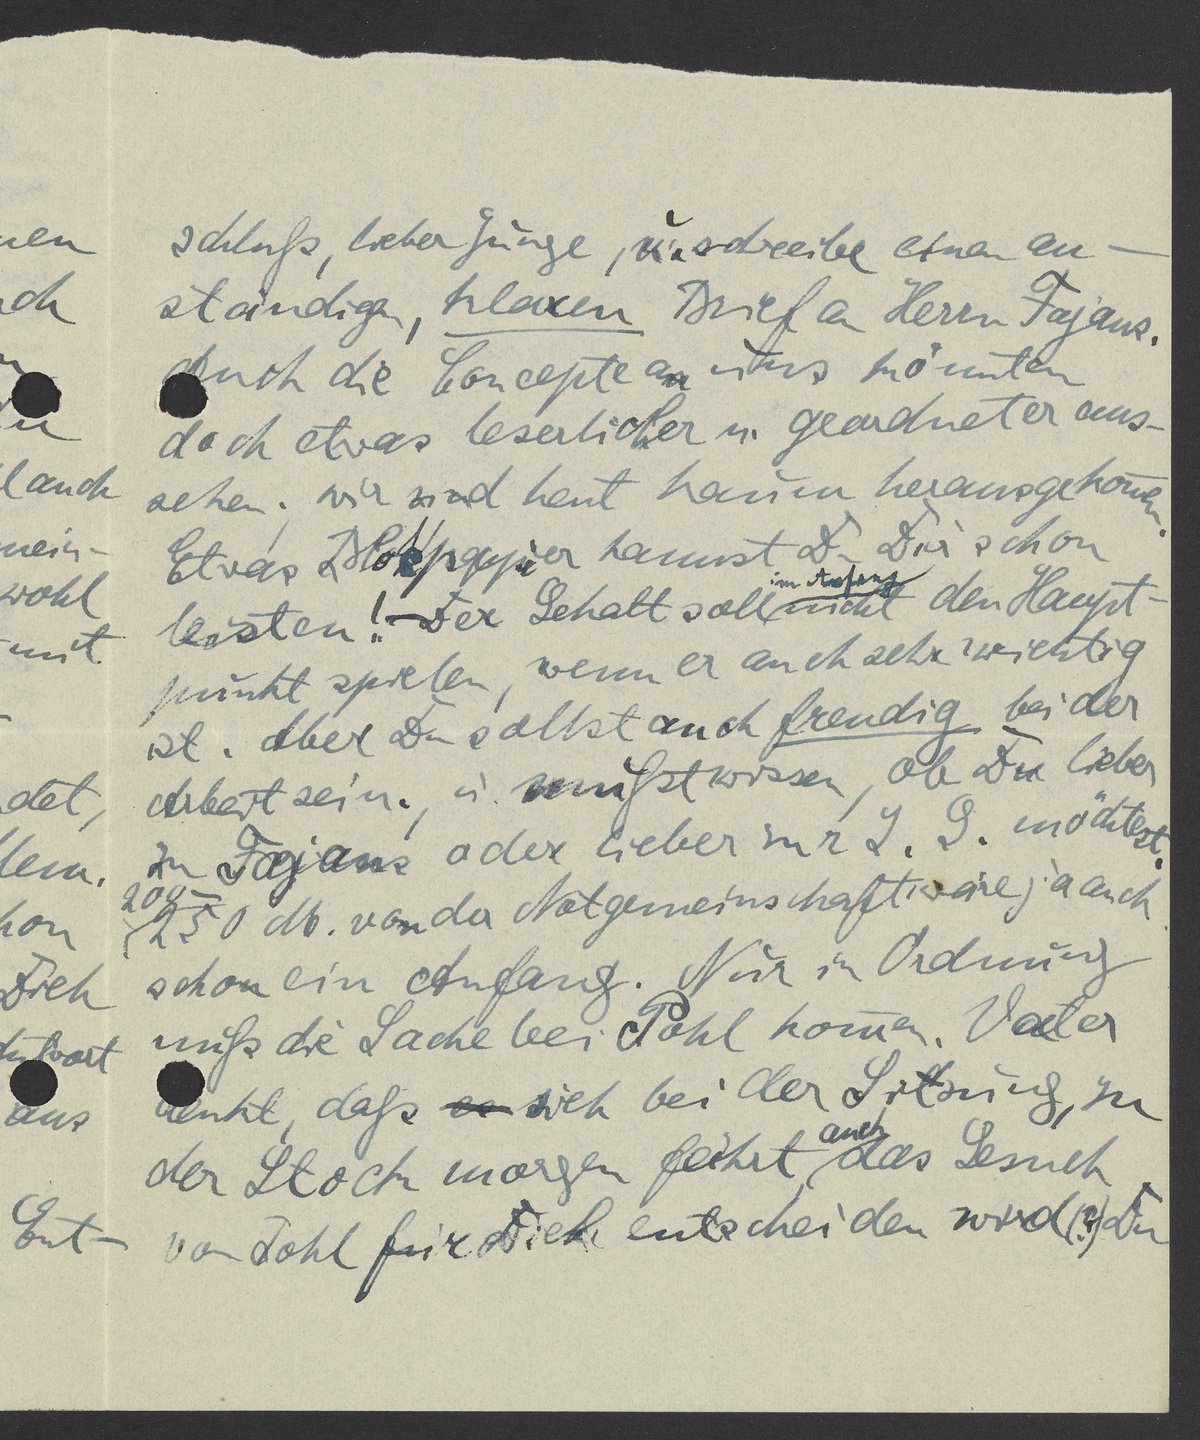 nen
ch
n
Du
l auch
mein-
wohl
mit
det,
llem.
hon
Dich
Antwort
aus
Ent-
schluß, lieber Junge, u. schreibe einen an-
ständigen, klaren Brief an Herrn Fajans.
Auch die Concepte an uns könnten
doch etwas leserlicher u. geordneter aus-
sehen; wir sind heut kaum herausgekom̄en.
Etwas Blokpapier kannst Du Dir schon
leisten! – Der Gehalt soll im Anfang nicht den Haupt-
punkt spielen, wenn er auch sehr wichtig
ist. Aber Du sollst auch freudig bei der
Arbeit sein, u. mußt wissen, ob Du lieber
zu Fajans oder lieber zur I. G. möchtest.
200–
250 M. von der Notgemeinschaft wäre ja auch
schon ein Anfang. Nur in Ordnung
muß die Sache bei Pohl kom̄en. Vater
denkt, daß es sich bei der Sitzung, zu
der Stock morgen fährt, auch das Gesuch
von Pohl für Dich entscheiden wird (?) Du